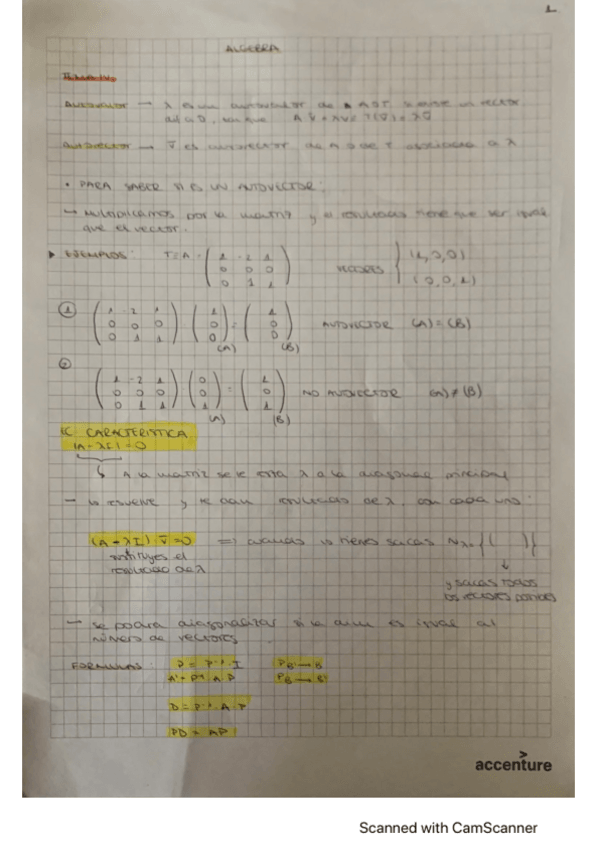 1
ALGEBRA
TEMA IV
AUTOVALOR → λ es un autovalor de A si existe un vector
≠ 0, tal que A v̄ = λv = T(v̄) = λv̄
AUTOVECTOR → v̄ es autovector de A o de T asociado a λ
• PARA SABER SI ES UN AUTOVECTOR:
→ Multiplicamos por la matriz y el resultado tiene que ser igual
que el vector.
▸ EJEMPLOS: T=A= (1 -2 1 / 0 0 0 / 0 1 1) VECTORES { (1,0,0)
(0,0,1)
① (1 -2 1 / 0 0 0 / 0 1 1) (1 / 0 / 0) = (1 / 0 / 0) AUTOVECTOR (A)=(B)
(A) (B)
② (1 -2 1 / 0 0 0 / 0 1 1) (0 / 0 / 1) = (1 / 0 / 1) NO AUTOVECTOR (A)≠(B)
(A) (B)
EC CARACTERISTICA
|A-λI|=0
↳ A la matriz se le resta λ a la diagonal principal
— se resuelve y te dan resultados de λ, con cada uno:
(A-λI)·v̄=0 ⇒ cuando lo tienes sacas Nλ= {( )}
sustituyes el
resultado de λ
y sacas todos
los vectores posibles
— se podrá diagonalizar si la dim es igual al
número de vectores
FORMULAS: D = P⁻¹·I P B'→B
A' = P⁻¹·A·P P B→B'
D = P⁻¹·A·P
PD = AP
accenture
Scanned with CamScanner